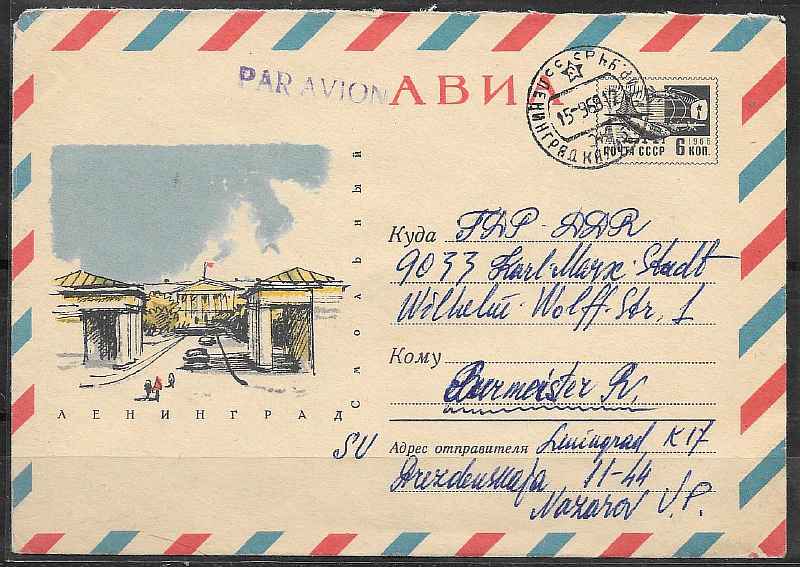 PAR AVION
АВИА
15-9 68 17
ЛЕНИНГРАД
ПОЧТА СССР
1966
6 КОП.
СМОЛЬНЫЙ
ЛЕНИНГРАД
Куда ГДР - DDR
9033 Karl-Marx-Stadt
Wilhelm-Wolff-Str. 1
Кому
Burmeister R.
SU
Адрес отправителя Leningrad K 17
Drezdenskaja 11-44
Nazarov V. P.